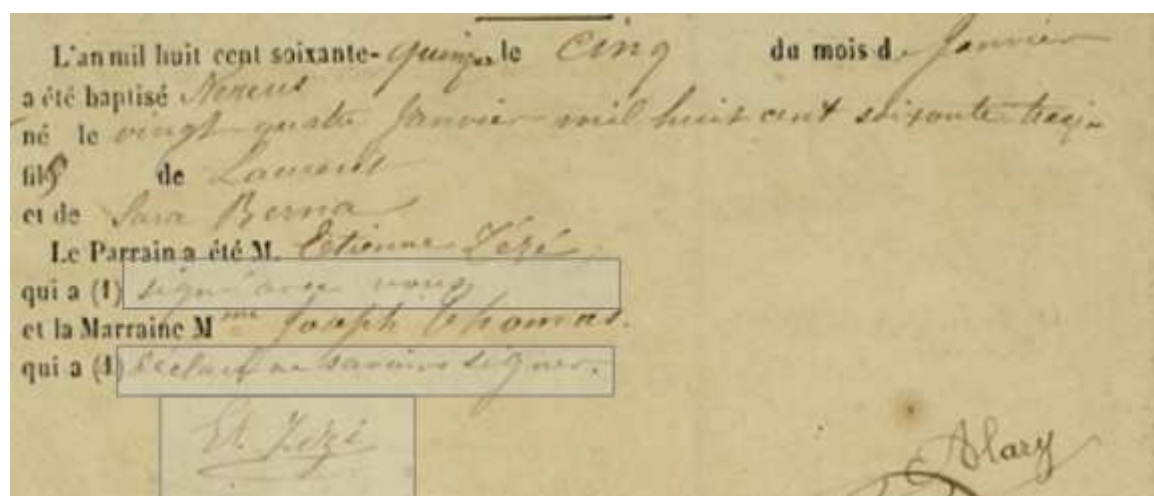 L'an mil huit cent soixante-quinze le Cinq du mois d. Janvier
a été baptisé Nereus
né le vingt quatre Janvier mil huit cent soixante treize
fils de Laurent
et de Sara Berna
Le Parrain a été M. Etienne Zézé
qui a (1) signé avec nous
et la Marraine M me Joseph Thomas.
qui a (1) déclaré ne savoir signer.
Et. Zézé
Alary